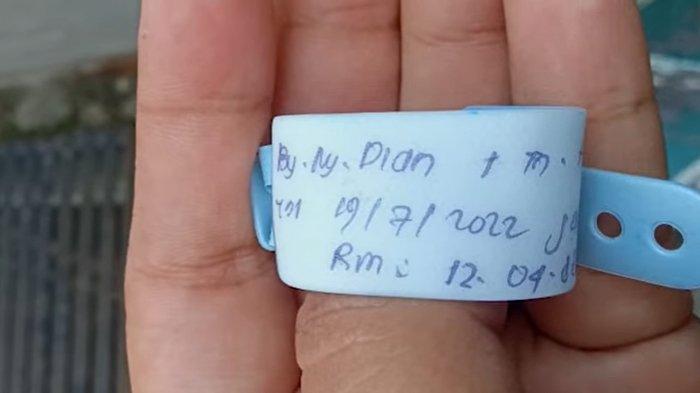 By. Ny. Dian / m.
19/7/2022
Rm: 12. 04.